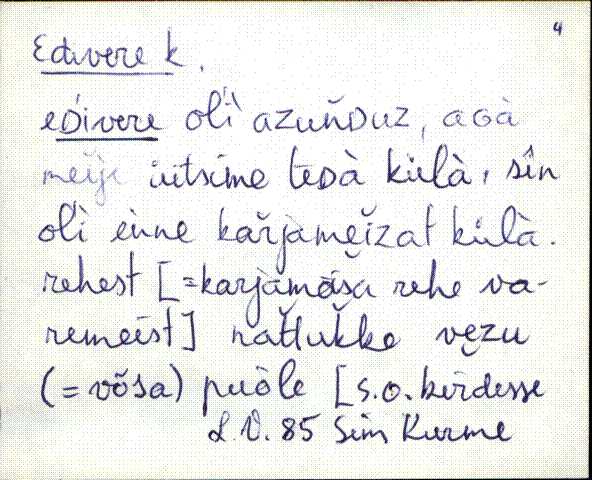 4
Edivere k.
eDivere oli azuńDuz, aGa
meije üitsime teDà külà, sîn
oli enne kaŕjàmeĭzat külà.
rehest [= karjamõisa rehe va-
remeist] nattukke vęzu
(= võsa) puole [s.o. kirdesse
L.V. 85 Sim Kurme